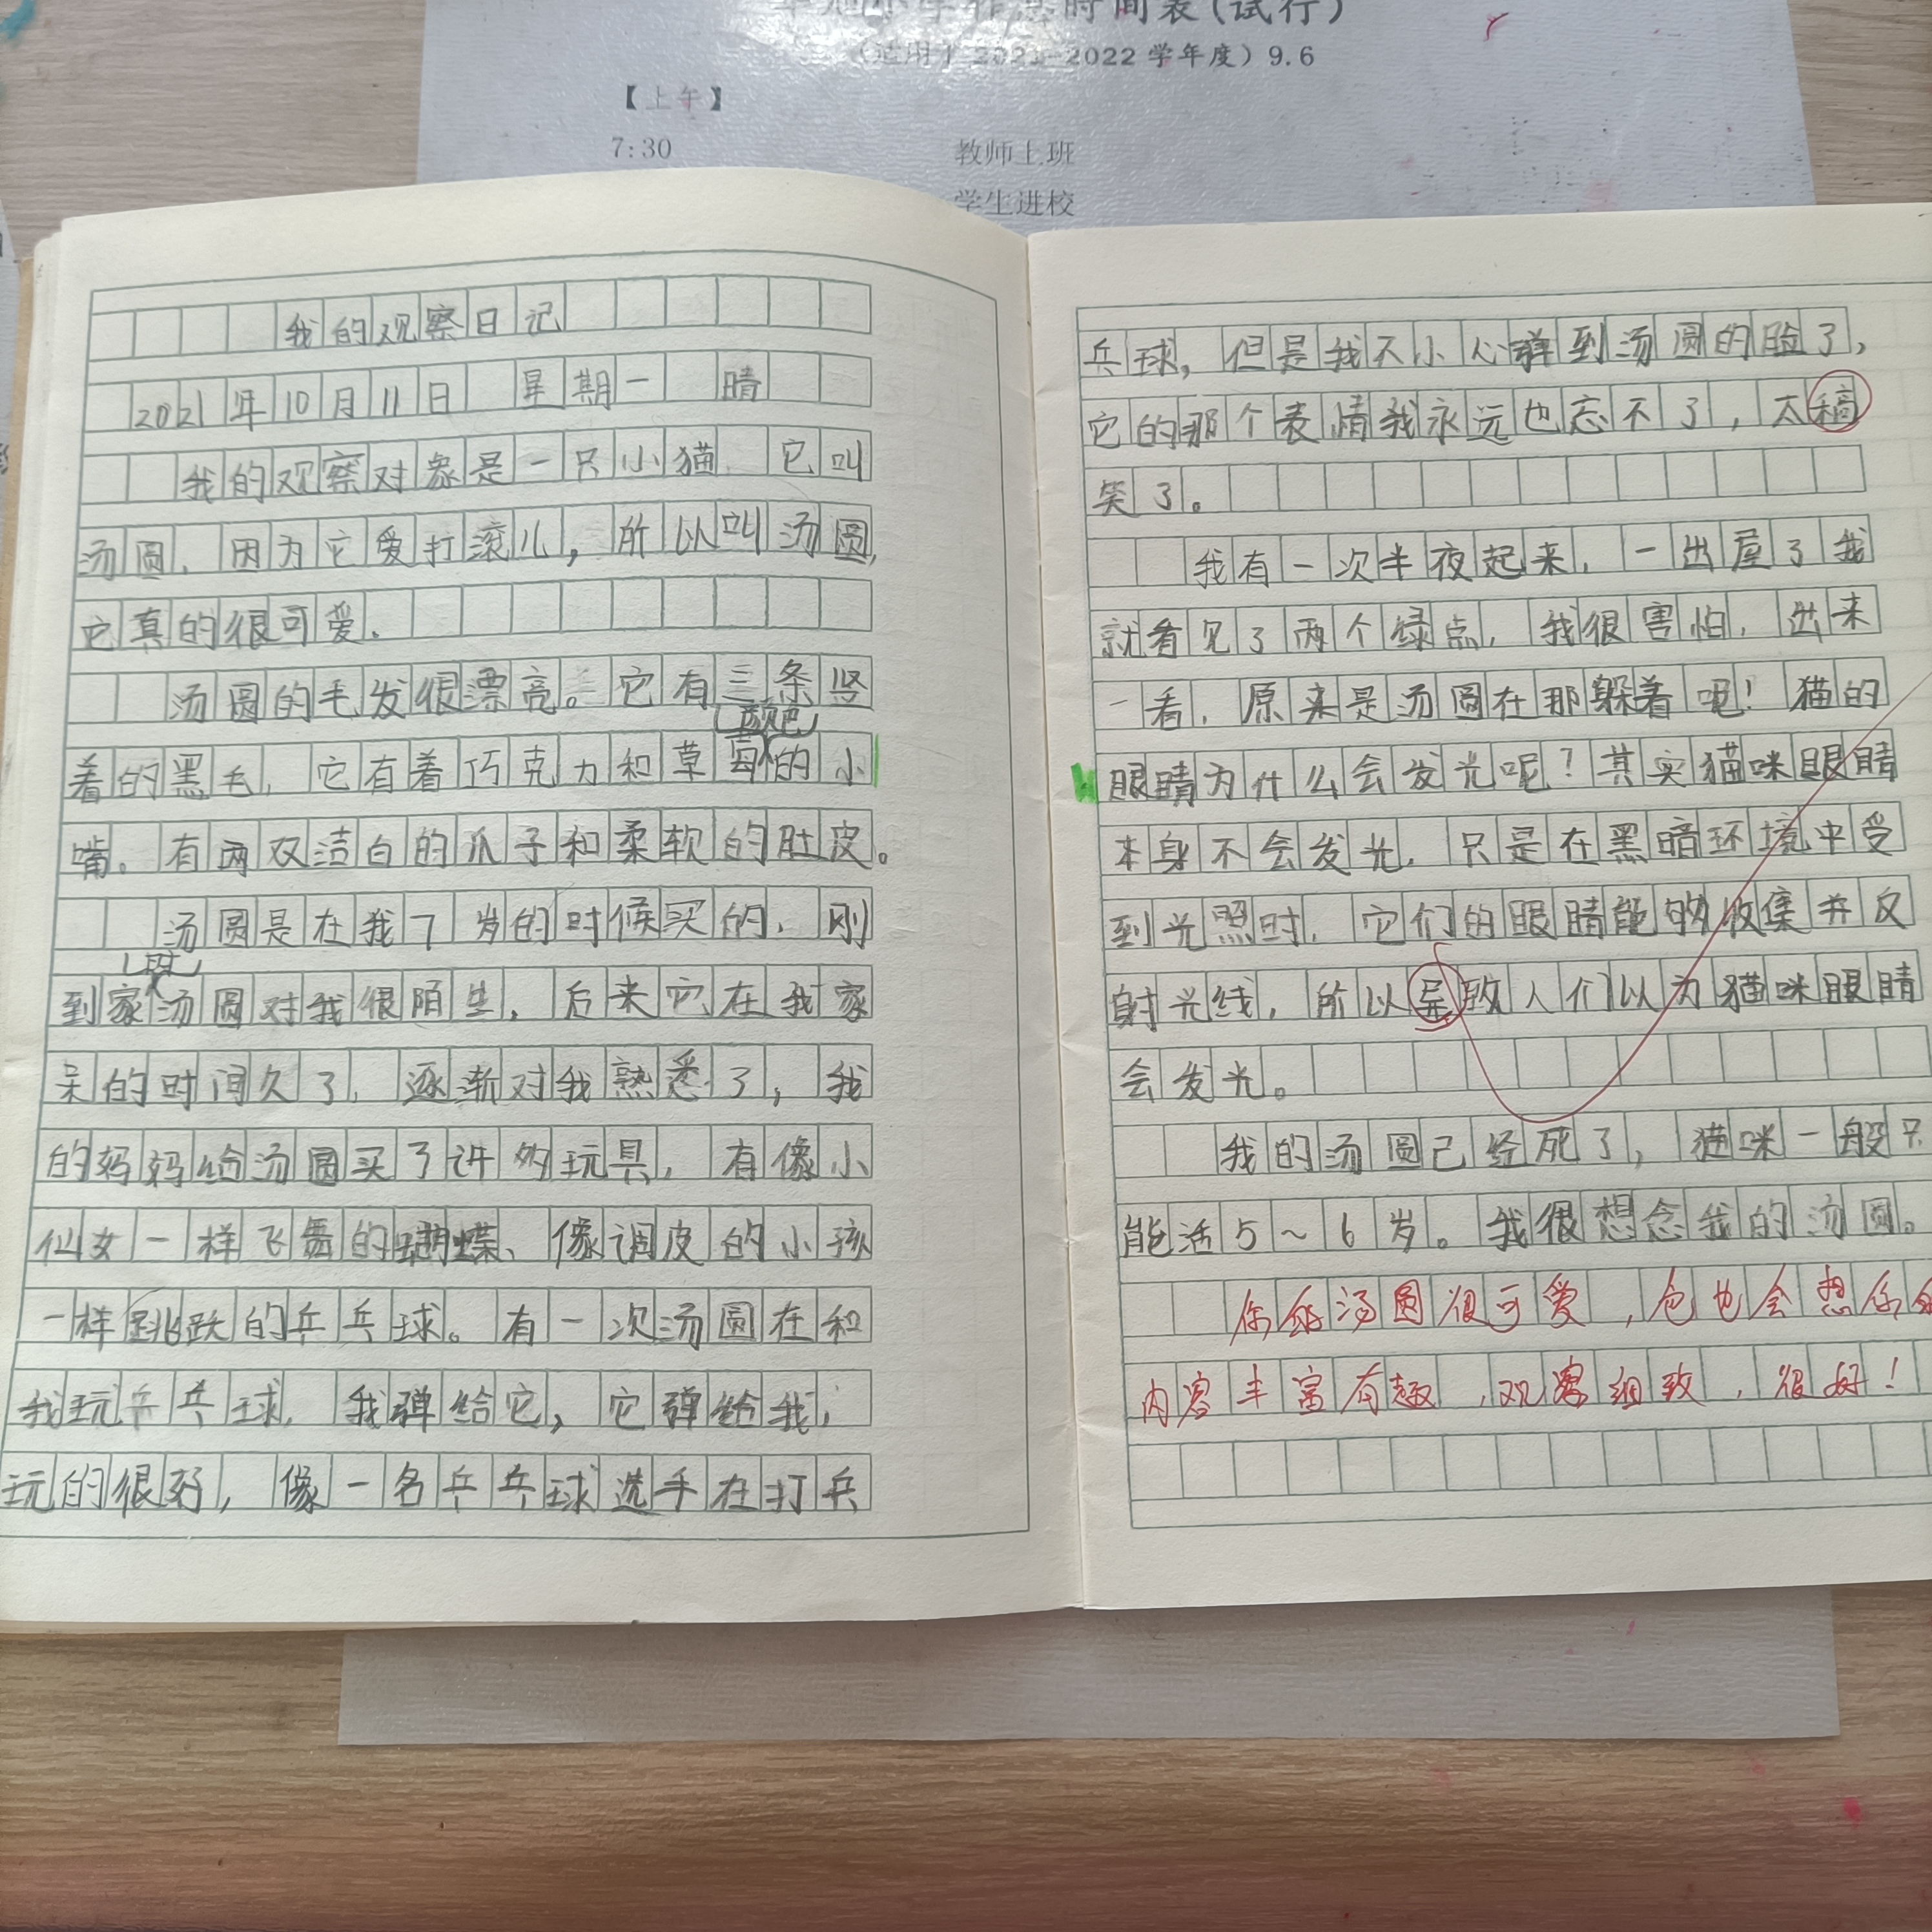 时间表(试行)
(适用于2021-2022学年度)9.6
【上午】
7:30 教师上班
学生进校
我的观察日记
2021年10月11日 星期一 晴
我的观察对象是一只小猫，它叫
汤圆，因为它爱打滚儿，所以叫汤圆，
它真的很可爱。
汤圆的毛发很漂亮。它有三条竖
着的黑毛，它有着巧克力和草莓的小
嘴。有两双洁白的爪子和柔软的肚皮。
汤圆是在我7岁的时候买的，刚
到家时汤圆对我很陌生，后来它在我家
呆的时间久了，逐渐对我熟悉了，我
的妈妈给汤圆买了许多玩具，有像小
仙女一样飞舞的蝴蝶、像调皮的小孩
一样跳跃的乒乓球。有一次汤圆在和
我玩乒乓球，我弹给它，它弹给我，
玩的很好，像一名乒乓球选手在打乒
乓球，但是我不小心弹到汤圆的脸了，
它的那个表情我永远也忘不了，太稿
笑了。
我有一次半夜起来，一出屋了我
就看见了两个绿点，我很害怕，出来
一看，原来是汤圆在那躲着呢！猫的
眼睛为什么会发光呢？其实猫咪眼睛
本身不会发光，只是在黑暗环境中受
到光照时，它们的眼睛能够收集并反
射光线，所以导致人们以为猫咪眼睛
会发光。
我的汤圆己经死了，猫咪一般只
能活5~6岁。我很想念我的汤圆。
你的汤圆很可爱，它也会想你的
内容丰富有趣，观察细致，很好！